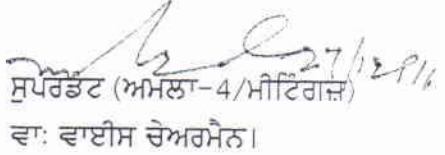 27/12/16
ਸੁਪਰਡੰਟ (ਅਮਲਾ-4/ਮੀਟਿੰਗਜ਼)
ਵਾ: ਵਾਈਸ ਚੇਅਰਮੈਨ।